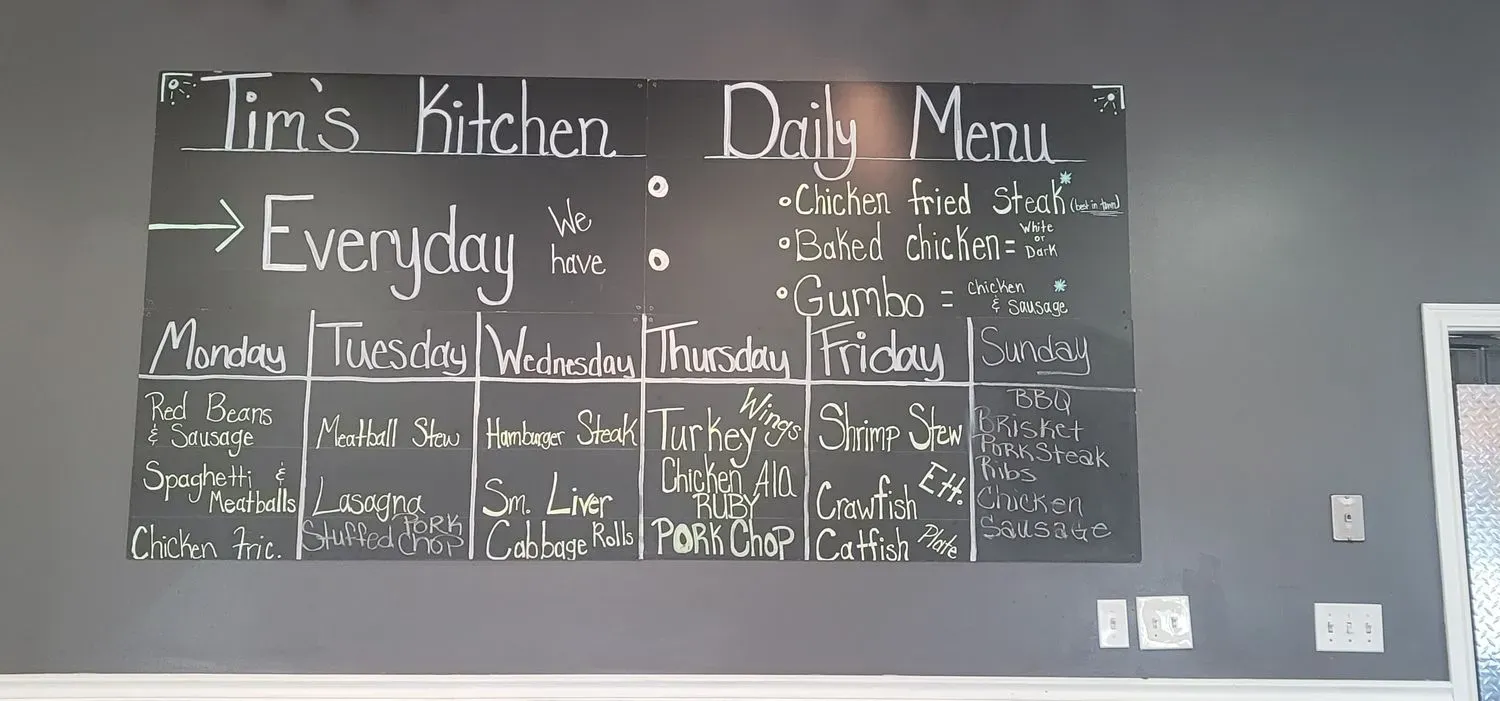 Tim's Kitchen Daily Menu
Everyday We have
Chicken fried Steak (best in town)
Baked chicken = White or Dark
Gumbo = Chicken & Sausage
Monday
Red Beans
& Sausage
Spaghetti &
Meatballs
Chicken Fric.
Tuesday
Meatball Stew
Lasagna
Stuffed PORK CHOP
Wednesday
Hamburger Steak
Sm. Liver
Cabbage Rolls
Thursday
Turkey Wings
Chicken Ala
RUBY
PORK CHOP
Friday
Shrimp Stew
Crawfish Ett.
Catfish Plate
Sunday
BBQ
Brisket
Pork Steak
Ribs
Chicken
Sausage